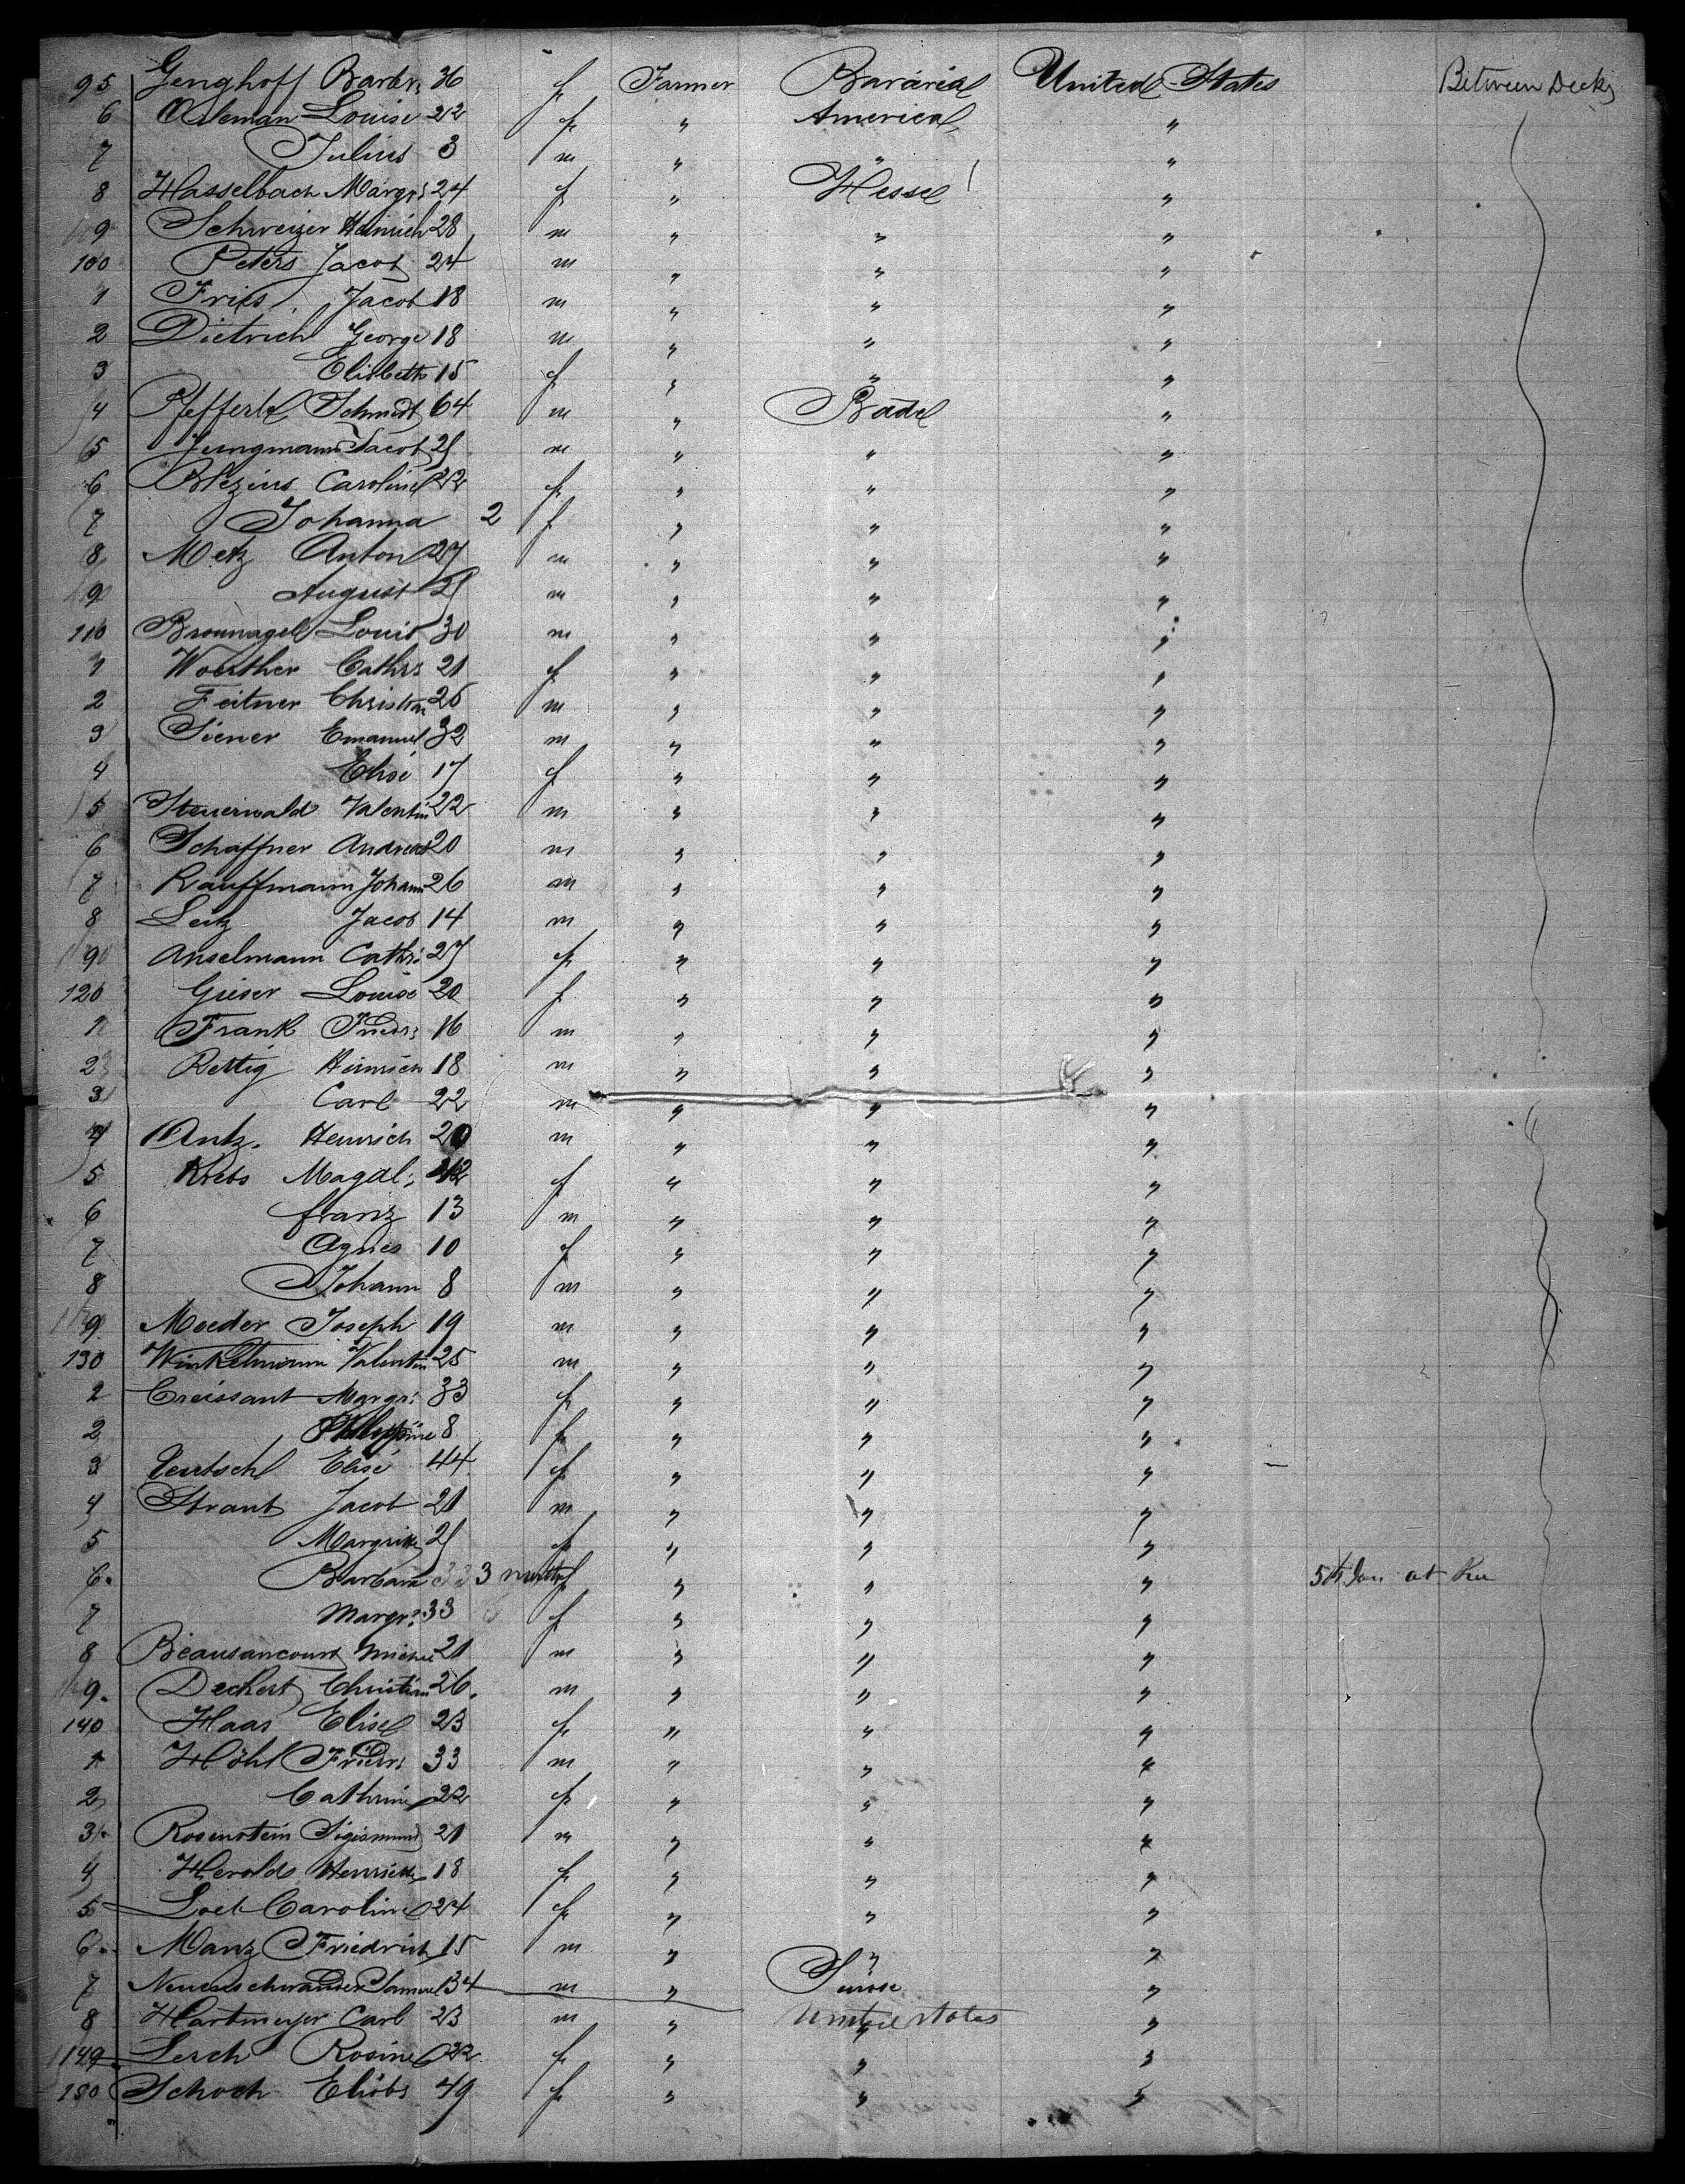 95 Genghoff Barbr: 36 f Farmer Bavaria United States Between Decks
6 Aleman Louise 22 f " America "
7 Julius 3 m " " "
8 Hasselbach Margr: 24 f " Hesse "
9 Schweizer Heinrich 28 m " " "
100 Peters Jacob 24 m " " "
1 Fries Jacob 18 m " " "
2 Dietrich George 18 m " " "
3 Elisbeth 15 f " " "
4 Pfefferle Schmidt 64 m " Bade "
5 Jungmann Jacob 21 m " " "
6 Blezins Caroline 22 f " " "
7 Johanna 2 f " " "
8 Metz Anton 27 m " " "
9 August 21 m " " "
110 Bronnagell Louis 30 m " " "
1 Woerther Cathr: 21 f " " "
2 Feitner Christian 25 m " " "
3 Siener Emanuel 32 m " " "
4 Elise 17 f " " "
5 Steuerwald Valentin 22 m " " "
6 Schaffner Andreas 20 m " " "
7 Kauffmann Johann 26 m " " "
8 Leitz Jacob 14 m " " "
9 Anselmann Cathr: 27 f " " "
120 Gieser Louise 20 f " " "
1 Frank Friedr: 16 m " " "
2 Rettig Heinrich 18 m " " "
3 Carl 22 m " " "
4 Antz. Heinrich 20 m " " "
5 Krebs Magdl: 42 f " " "
6 franz 13 m " " "
7 Agnes 10 f " " "
8 Johann 8 m " " "
9 Moeder Joseph 19 m " " "
130 Winkelmann Valentin 25 m " " "
2 Creissant Margr: 33 f " " "
2 Philippine 8 f " " "
3 Elise 44 f " " "
4 Straub Jacob 21 m " " "
5 21 f " " "
6 Barbara 3 f " " " 5th Jan at
7 Margr: 33 f " " "
8 Beausancourt 21 m " " "
9 Deckert Christian 26 m " " "
140 Haas Elise 23 f " " "
1 Höhl Friedr: 33 m " " "
2 Cathrine 22 f " " "
3 Rosenstein Sigismund 21 m " " "
4 Herolds Henriette 18 f " " "
5 Loeb Caroline 24 f " " "
6 Manz Friedrich 15 m " " "
7 Neuenschwander Samuel 34 m " Suisse "
8 Hartmeyer Carl 23 m " United States "
149 Lerch Rosine 22 f " " "
150 Schoch Elisbt 49 f " " "